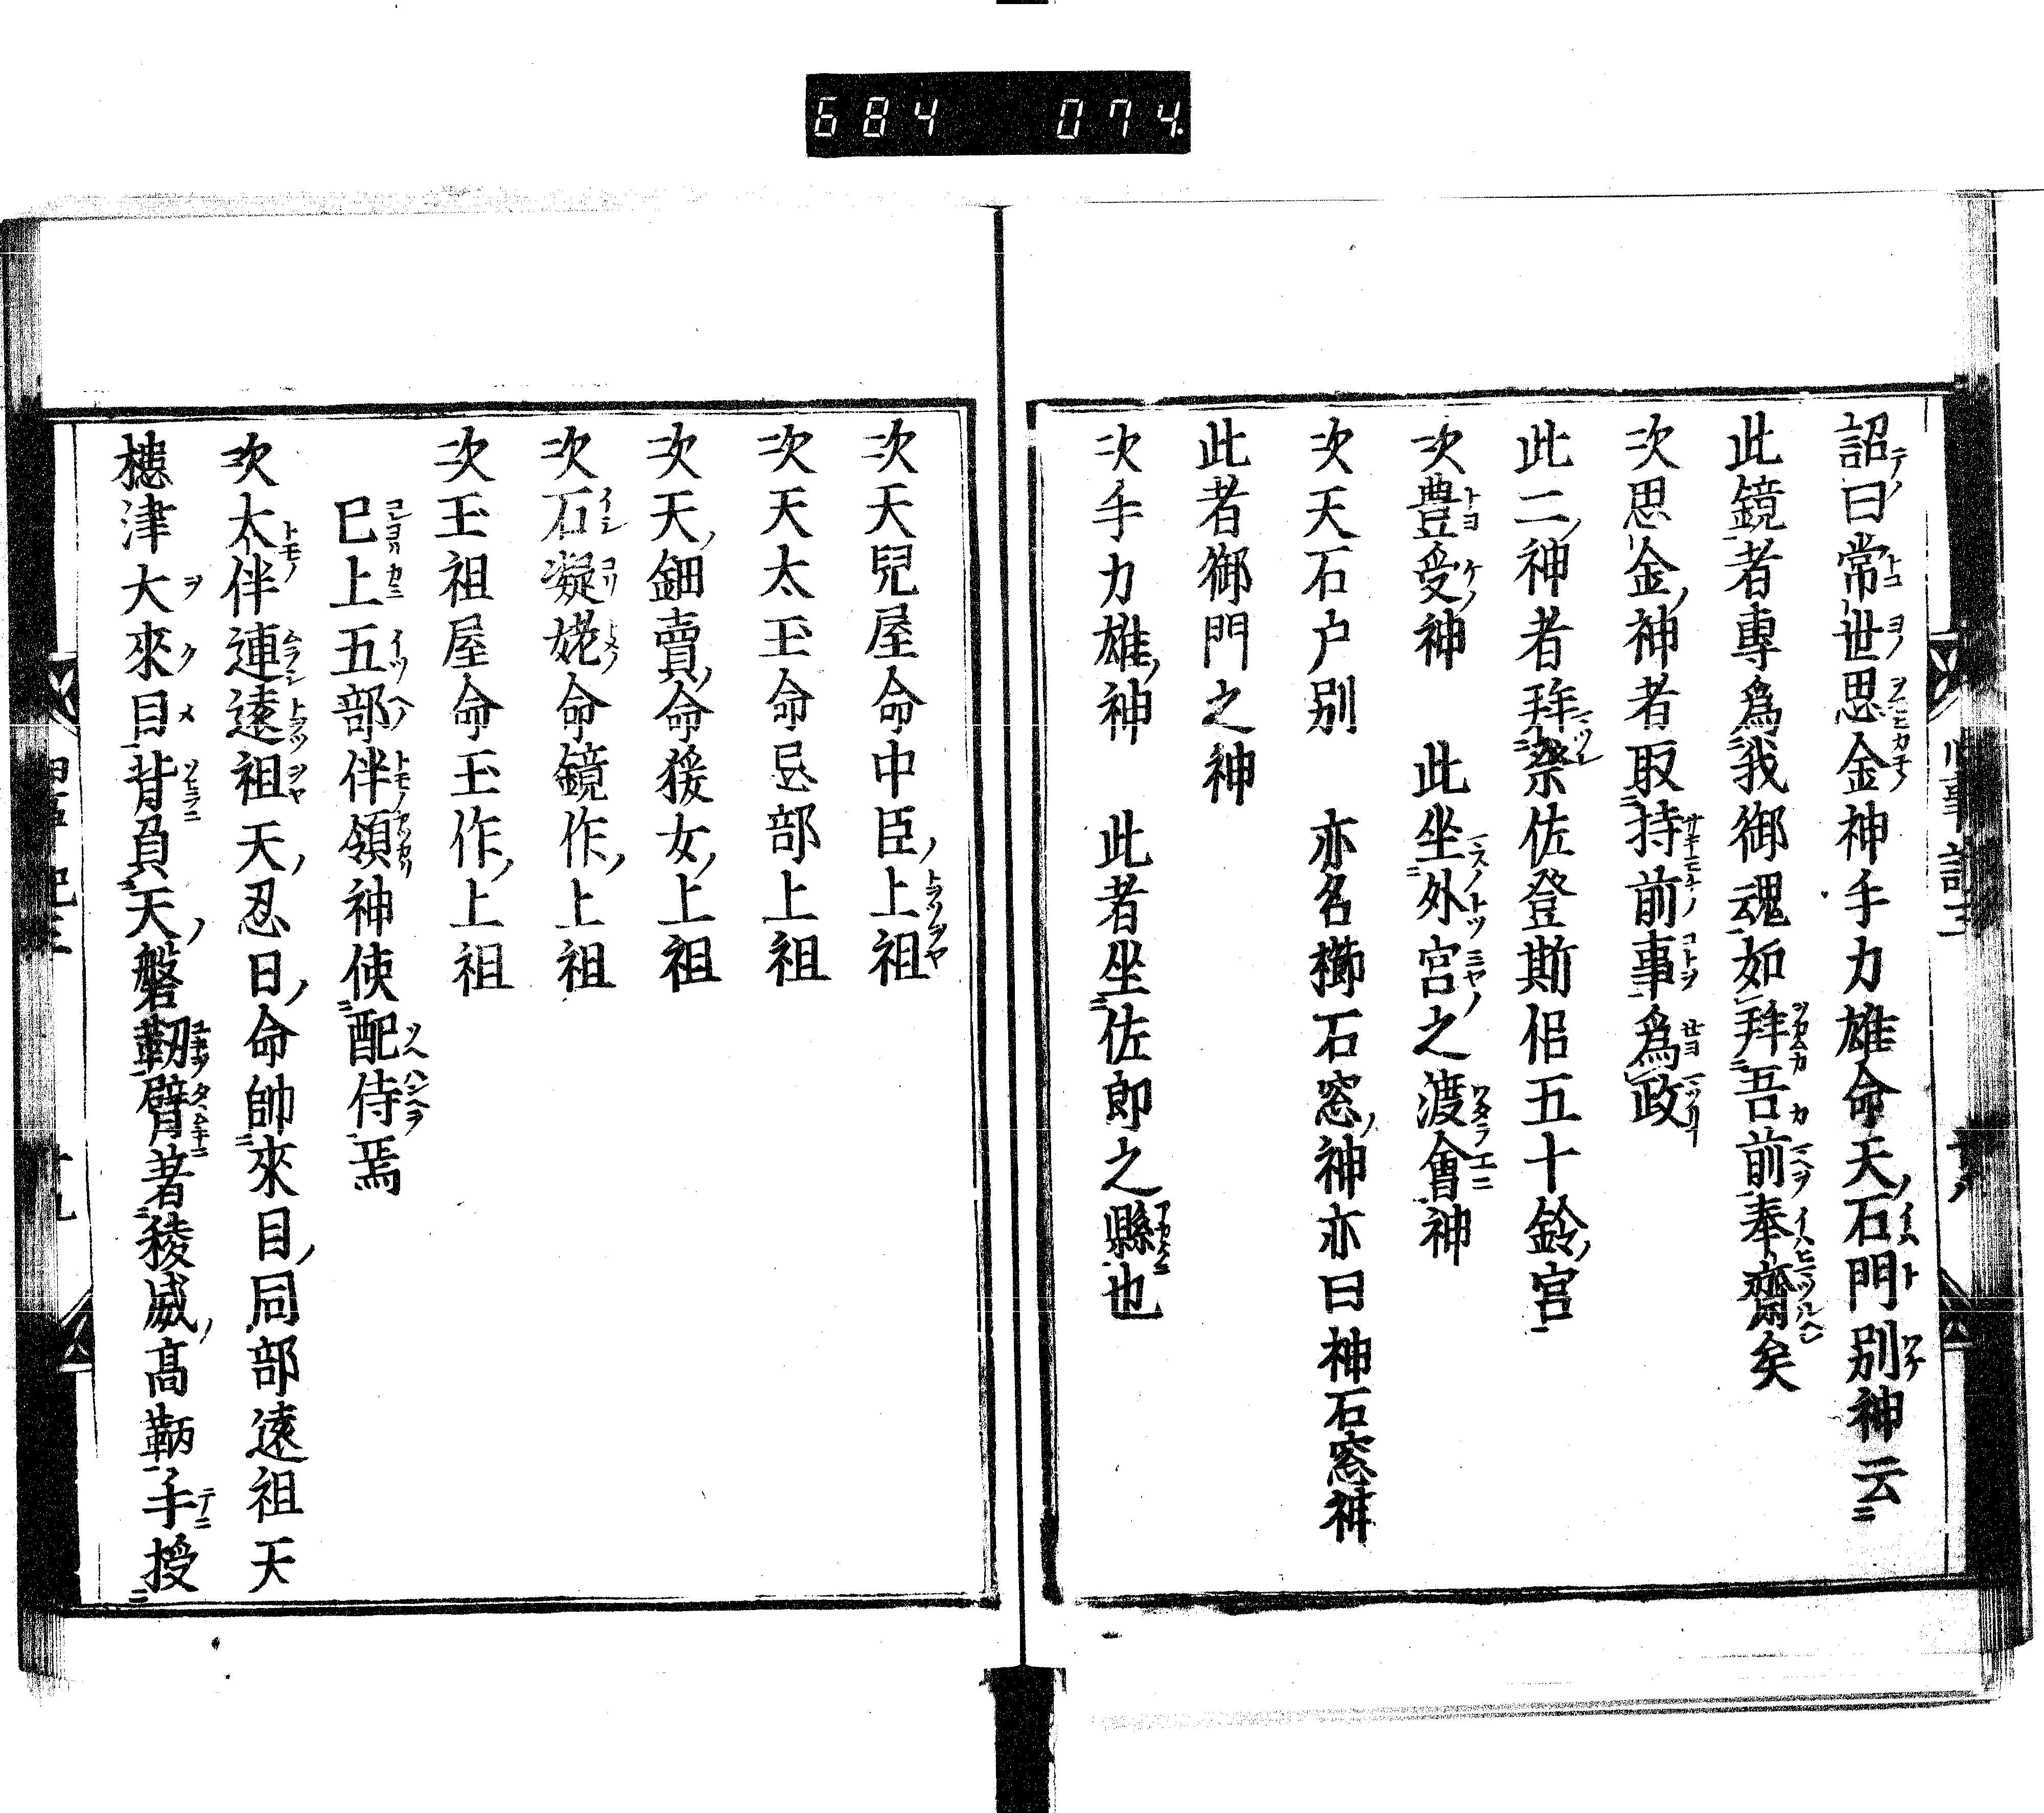 684 074
詔曰常世思金神手力雄命天石門別神云
此鏡者專爲我御魂如拜吾前奉齋矣
次思金神者取持前事爲政
此二神者拜祭佐登斯侶五十鈴宮
次豊受神　此坐外宮之渡會神
次天石户別　亦名櫛石窓神亦曰神石窓神
此者御門之神
次手力雄神　此者坐佐郎之縣也
次天兒屋命中臣上祖
次天太玉命忌部上祖
次天鈿賣命猨女上祖
次石凝姥命鏡作上祖
次玉祖屋命玉作上祖
已上五部伴領神使配侍焉
次太伴連遠祖天忍日命帥來目同部遠祖天
櫶津大來目背負天磐靫臂著稜威高鞆手授